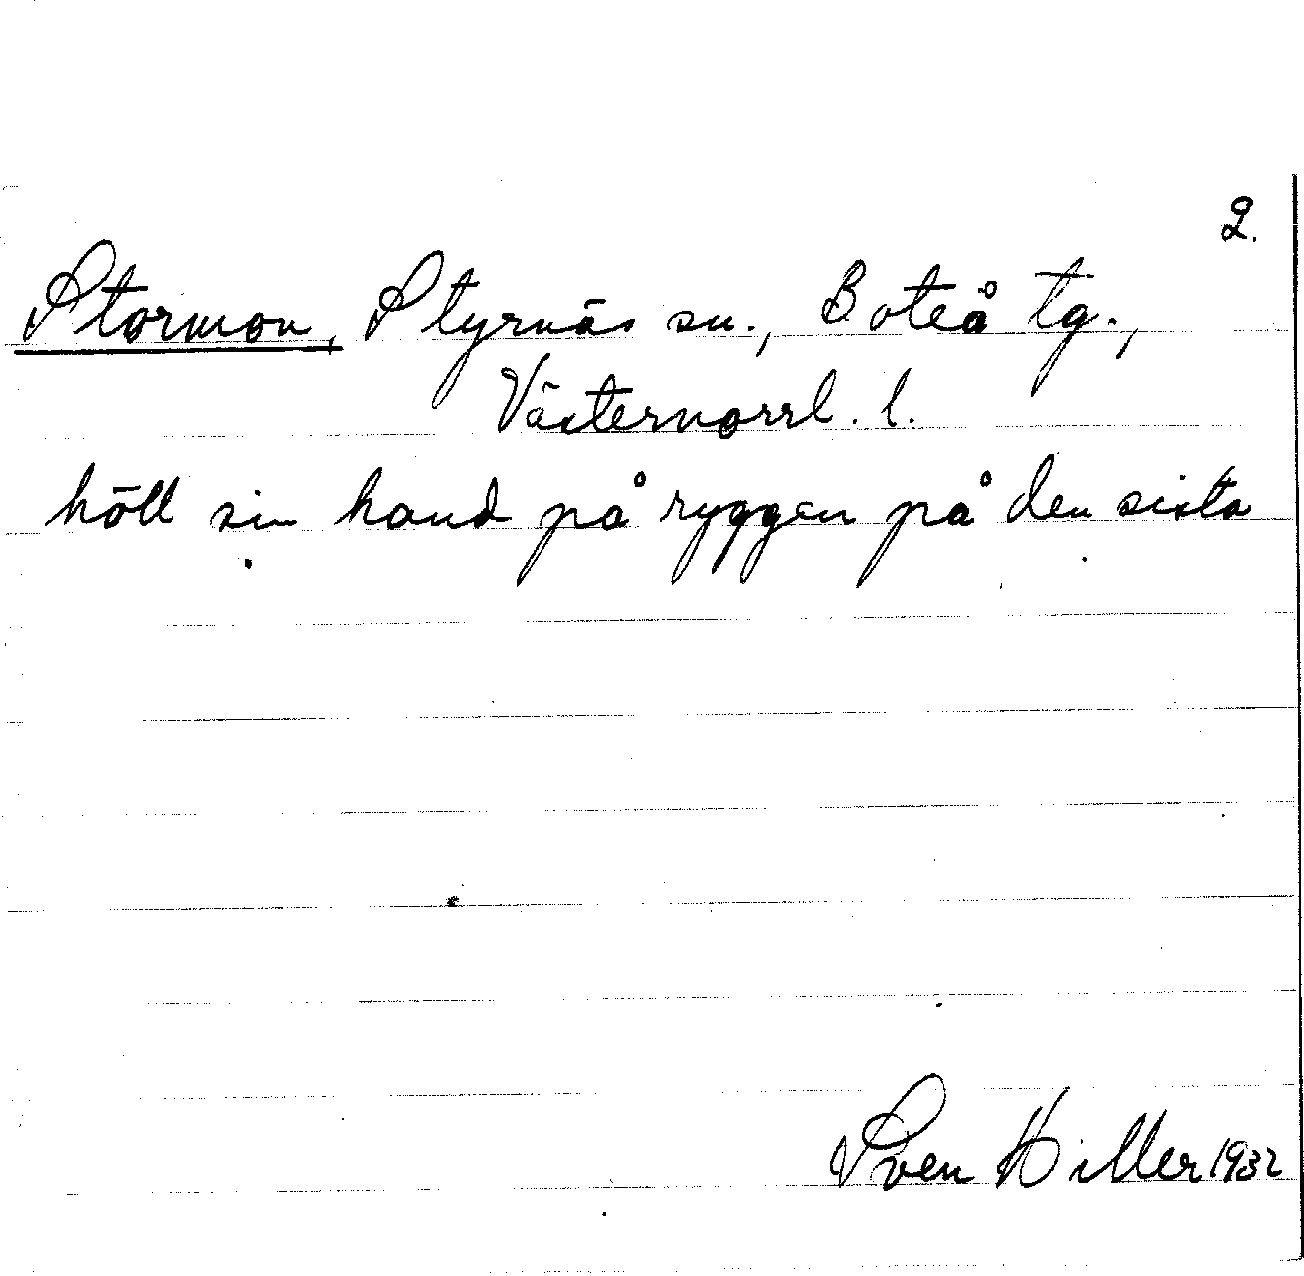 2.
Stormon, Styrnäs sn., Boteå tg.,
Västernorrl. l.
höll sin hand på ryggen på den sista
Sven Hiller 1932